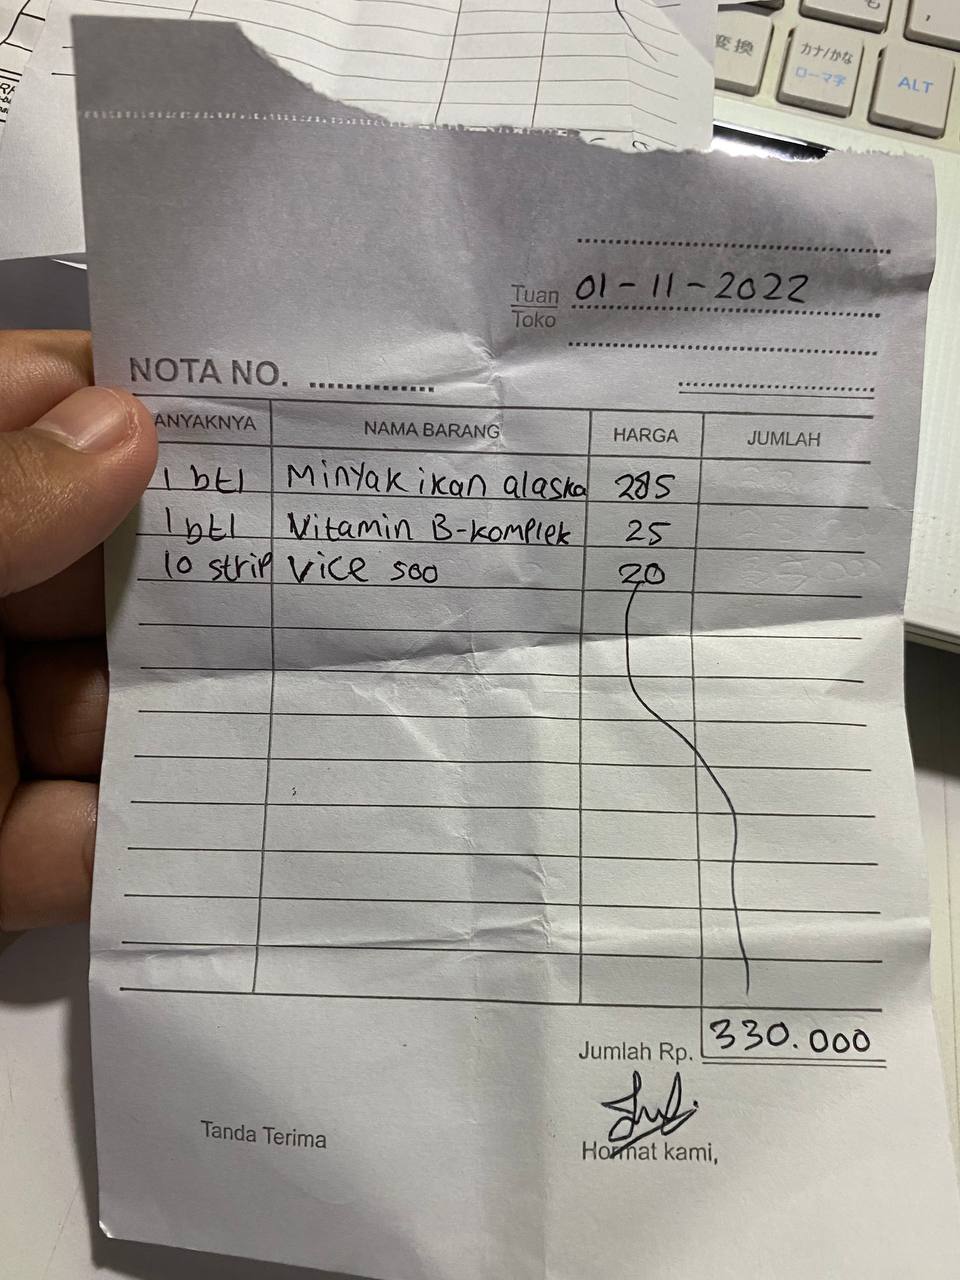 変換
カナ/かな
ローマ字
ALT
Tuan 01-11-2022
Toko
NOTA NO.
ANYAKNYA NAMA BARANG HARGA JUMLAH
1 btl Minyak ikan alaska 285
1 btl Vitamin B-komplek 25
10 strip Vice 500 20
Jumlah Rp. 330.000
Tanda Terima
Hormat kami,